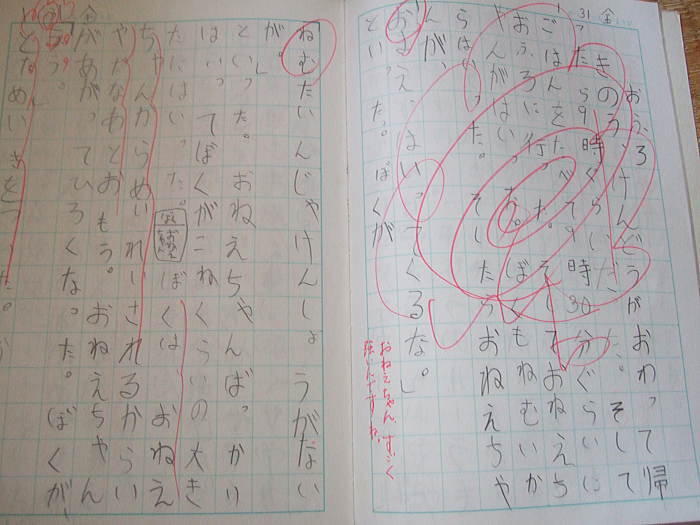 1/31 金
おふろ
きのう、けんどうがおわって帰
ったら9時ぐらいだった。そして
ごはんをたべて9時30分ぐらいに
おふろに行った。そしておねえち
ゃんがはいった。ぼくもねむいか
らはいった。そしたらおねえちゃ
んが、
「おまえ、はいってくるな。」
といった。ぼくが
おねえちゃん、すごく
強いんですね。
「ねむたいんじゃけんしょうがない
が。」
といった。おねえちゃんばっかり
はいってぼくがこねくらいの大き
たにはいった。ぼくは おねえ
ちゃんからめいれいされるからい
やだなあとおもう。おねえちゃん
があがってひろくなった。ぼくが、
う。
とためいきをついた。